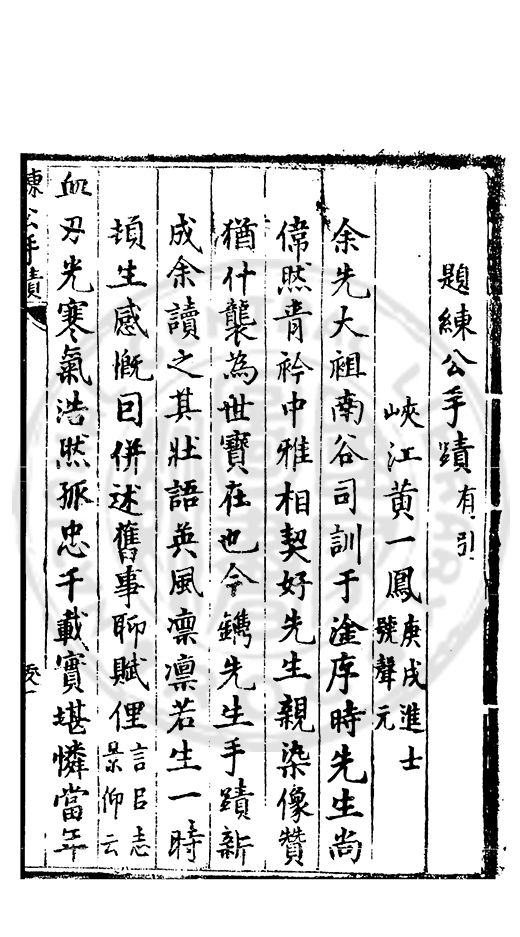 題練公手蹟有引
峽江黃一鳳庚戌進士號聲元
余先大祖南谷司訓于淦庠時先生尚
偉然青衿中雅相契好先生親染像贊
猶什襲為世寶在也今鐫先生手蹟新
成余讀之其壯語英風凛凛若生一時
頓生感慨因併述舊事聊賦俚言㠯志景仰云
血刃光寒氣浩然孤忠千載實堪憐當年
練公手蹟